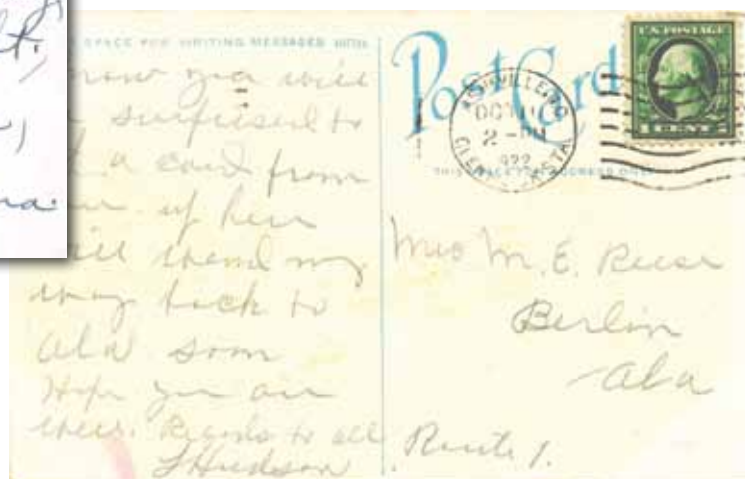 SPACE FOR WRITING MESSAGES
know you will
surprised to
a card from
me up here
will wend my
way back to
Ala soon
Hope you are
well. Regards to all
L Hudson
Post Card
ASHVILLE
OCT
2 - PM
1922
STA
THIS SPACE FOR ADDRESS ONLY
U.S. POSTAGE
1 CENT
Mrs M. E. Reese
Berlin
Ala
Route 1.